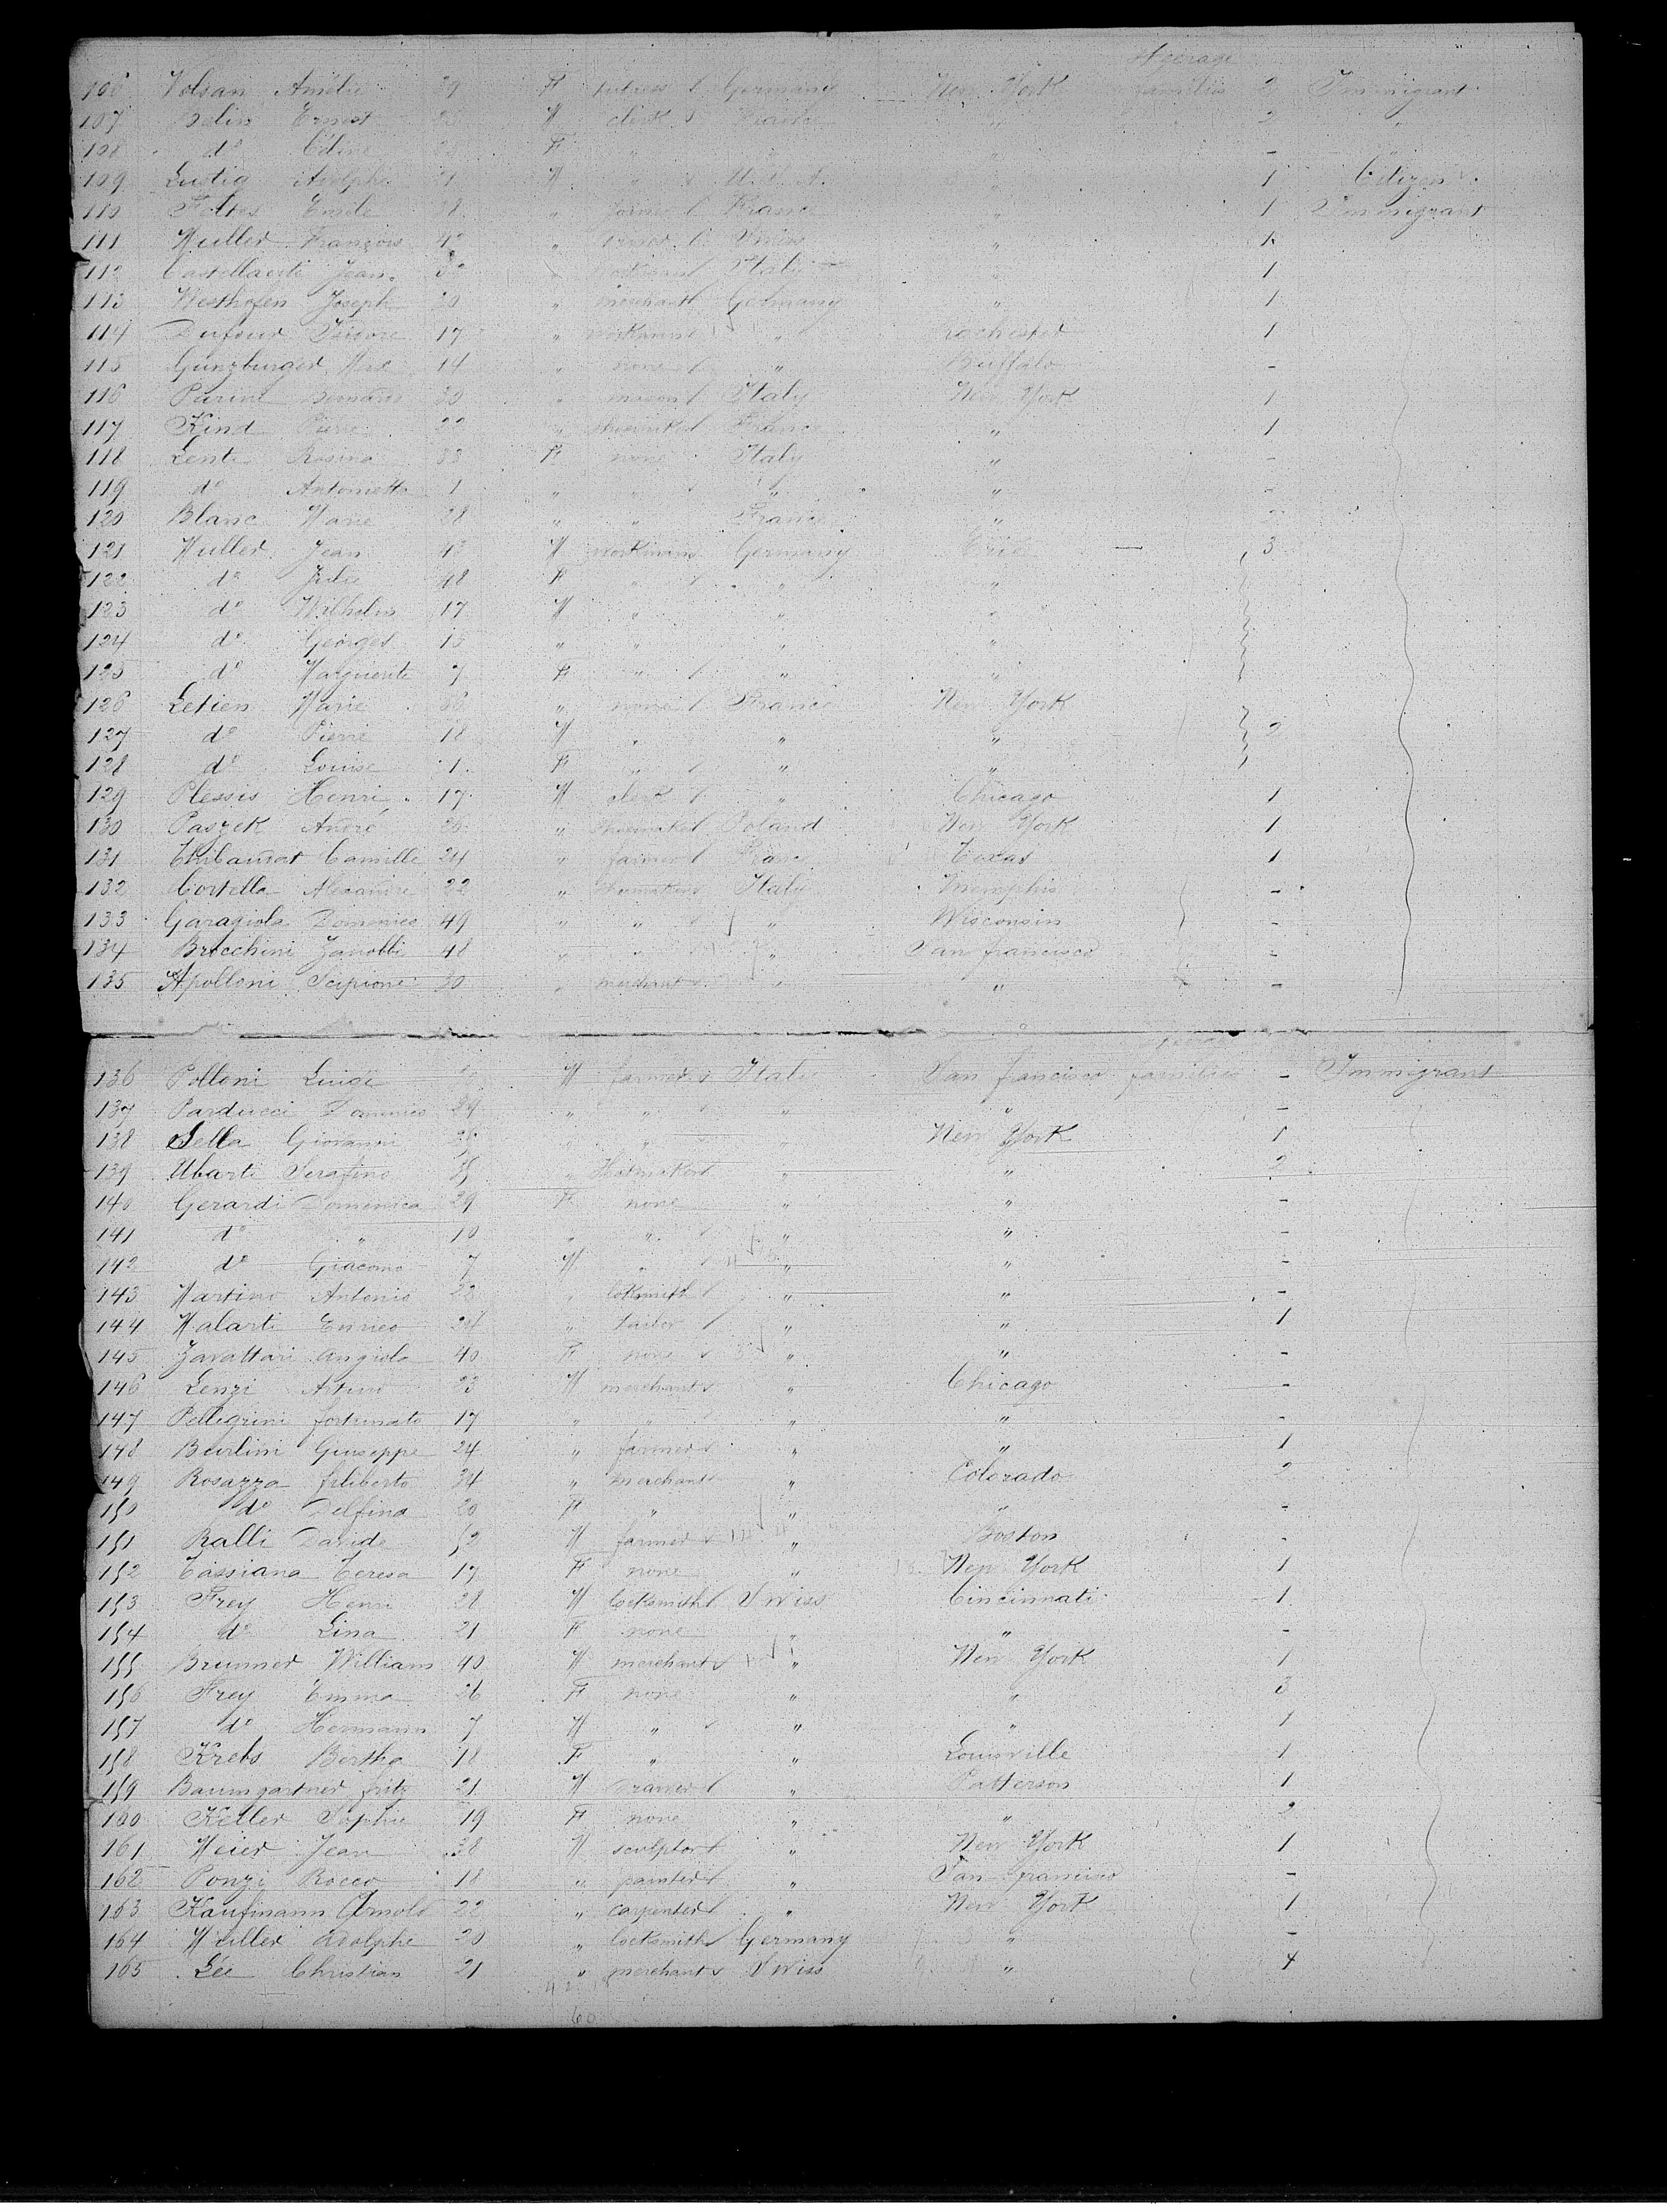 Steerage
106 Volsan Amélie 29 F Germany New York families 2 Immigrant
107 Belin Ernest M clerk France " 2 "
108 do Céline F " " " - "
109 Lustig Adolphe 21 M " U.S.A. " 1 Citizen
110 Emile 28 " farmer France " 1 Immigrant
111 Muller François " Swiss " 1
112 Jean " workman Italy " 1
113 Westhofen Joseph 30 " merchant Germany " 1
114 Dufour Isidore 17 " workman " Rochester 1
115 Gunzburger Max 14 " none " Buffalo -
116 Parini Bernardo 30 " mason Italy New York 1
117 Kind Pierre 22 " shoemaker France " 1
118 Lenti Rosina 33 F none Italy " -
119 do Antonietta 1 " " " " -
120 Blanc Marie 28 " " France " 2
121 Muller Jean 43 M workman Germany Erie 3
122 do Julie 48 F " " "
123 do Wilhelm 17 M " " "
124 do Georges 15 " " " "
125 do Marguerite 7 F " " "
126 Letien Marie 36 " none France New York
127 do Pierre 18 M " " " 2
128 do Louise 1 F " " "
129 Plessis Henri 17 M clerk " Chicago 1
130 Paszek André 26 " shoemaker Poland New York 1
131 Camille 24 " farmer France Texas 1
132 Cortella Alexandre 22 " shoemaker Italy Memphis -
133 Garagiola Domenico 49 " " " Wisconsin -
134 Brocchini Zanobbi 48 " " " San francisco -
135 Apolloni Scipione 30 " merchant " " -
136 Polloni Luigi M farmer Italy San francisco families - Immigrant
137 Parducci Domenico 29 " " " " -
138 Sella Giovanni " " " New York 1
139 Ubarti Serafino " Hatmaker " " 2
140 Gerardi Domenica 29 F none " " -
141 do " 10 " " " " -
142 do Giacomo 7 M " " " -
143 Martino Antonio 28 " locksmith " " -
144 Malarti Enrico 24 " tailor " " 1
145 Zavattari Angiola 40 F none " " -
146 Lenzi Arturo 23 M merchant " Chicago -
147 Pellegrini fortunato 17 " " " " -
148 Burlini Giuseppe 24 " farmer " " 1
149 Rosazza filiberto 34 " merchant " Colorado 2
150 do Delfina 20 F " " " -
151 Ralli Davide 52 M farmer " Boston -
152 Cassiana Teresa 17 F none " New York 1
153 Frey Henri 28 M locksmith Swiss Cincinnati 1
154 do Lina 21 F none " " -
155 Brunner William 40 M merchant " New York 1
156 Frey Emma 26 F none " " 3
157 do Hermann 7 M " " " 1
158 Krebs Bertha 18 F " " Louisville 1
159 Baumgartner fritz 21 M " Patterson 1
160 Keller Sophie 19 F none " " 2
161 Meier Jean 38 M sculptor " New York 1
162 Ponzi Rocco 18 " painter " San francisco -
163 Kaufmann Arnold 22 " carpenter " New York 1
164 Muller Adolphe 20 " locksmith Germany " -
165 Lee Christian 21 " merchant Swiss " 4
42
60